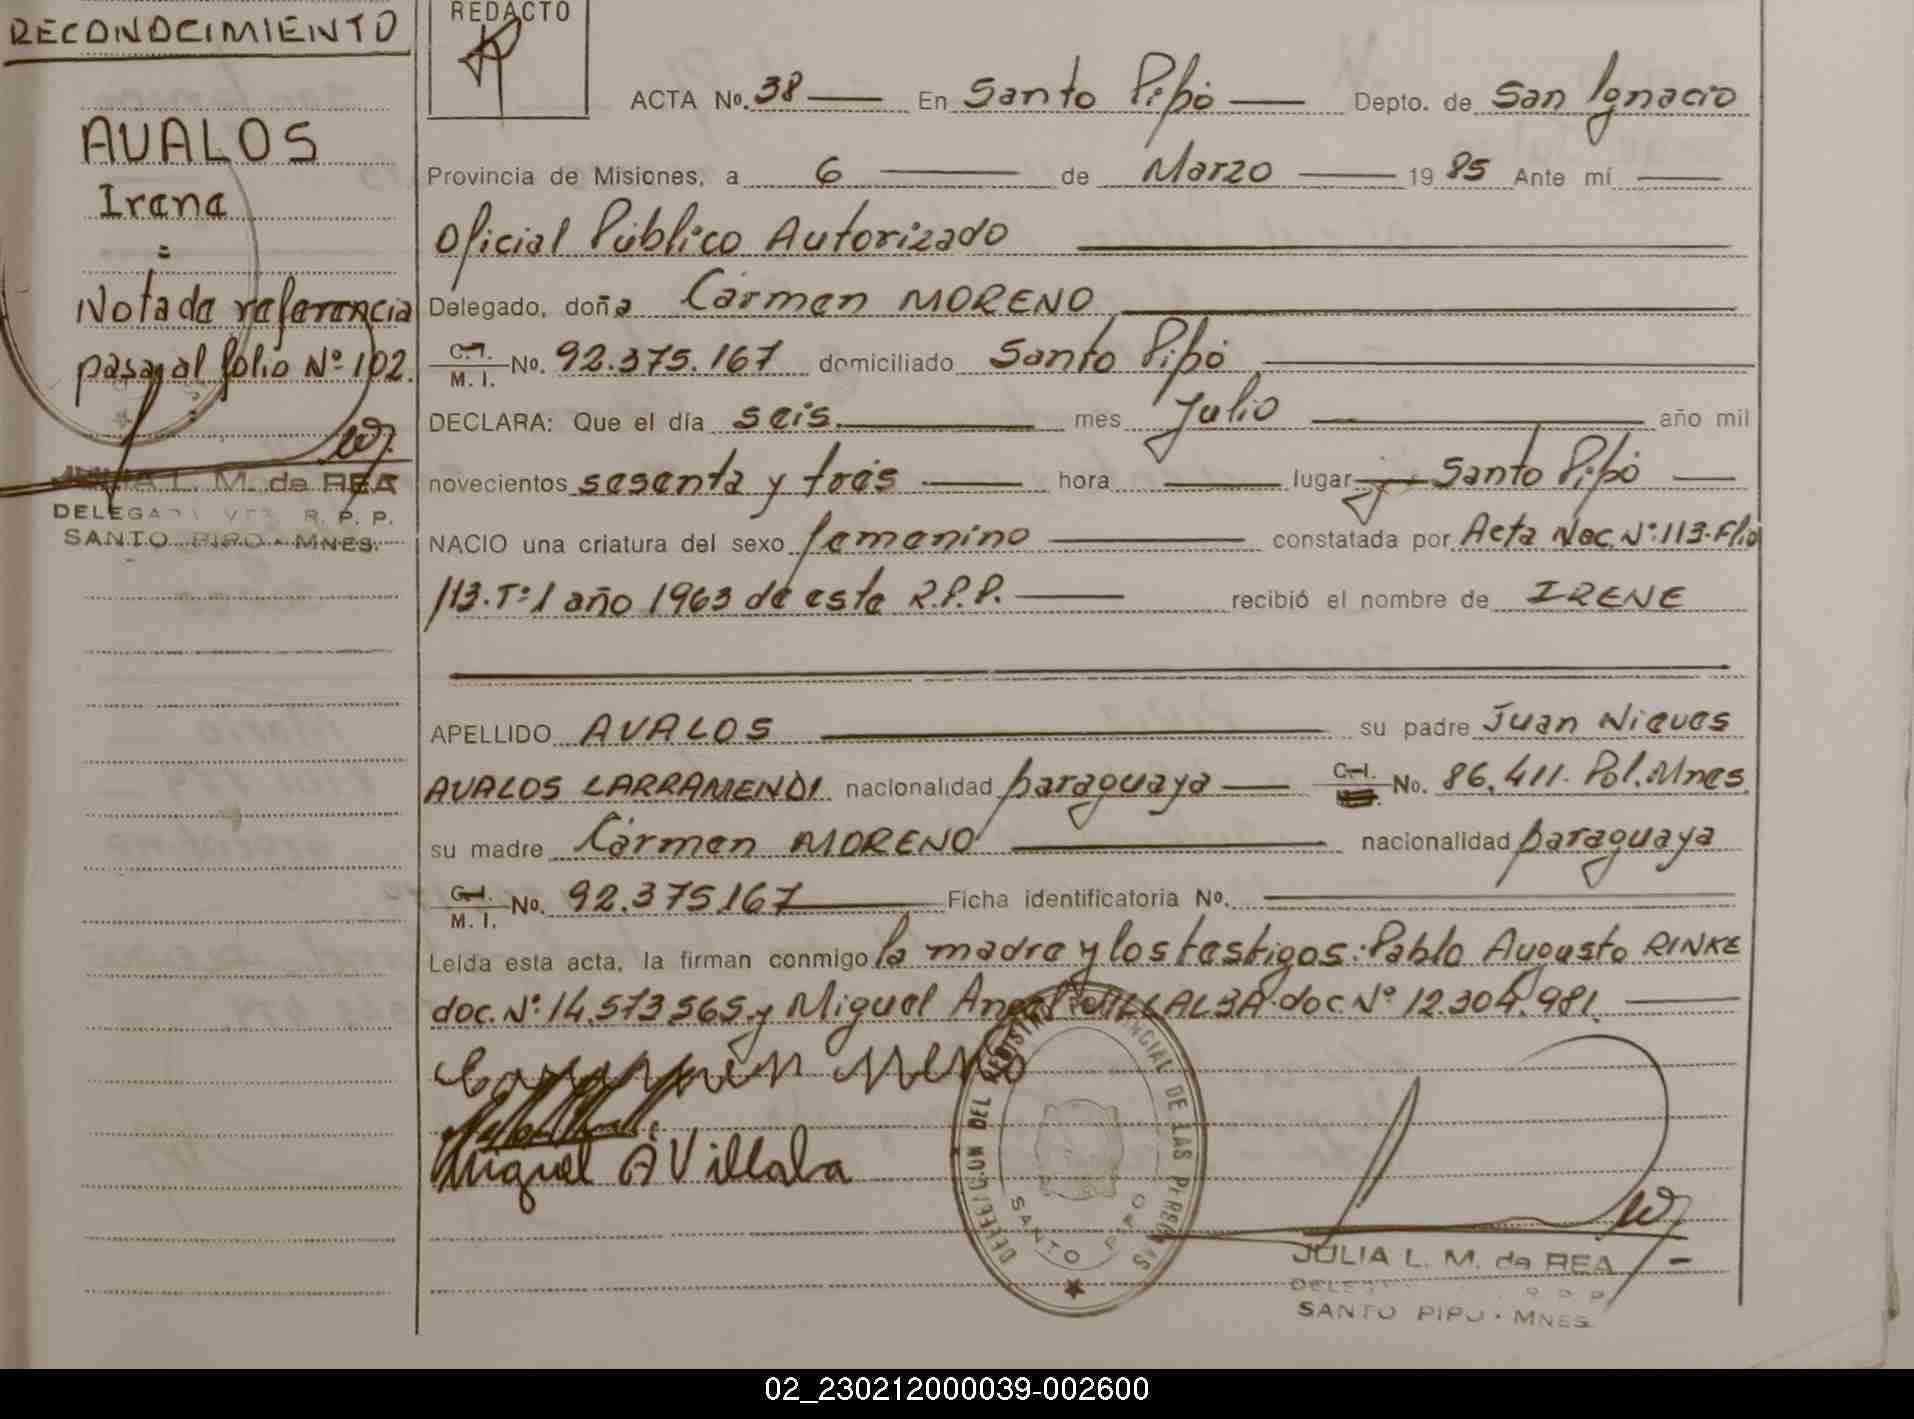 RECONOCIMIENTO
AVALOS
Irene
=
Nota de referencia
pasa al folio Nº 102.
JULIA L. M. de REA
DELEGADA R. P. P.
SANTO PIPO - MNES.
REDACTO
ACTA No. 38 En Santo Pipó Depto. de San Ignacio
Provincia de Misiones, a 6 de Marzo 19 85 Ante mí
Oficial Público Autorizado
Delegado, doña Cármen MORENO
C.I. M. I. No. 92.375.167 domiciliado Santo Pipó
DECLARA: Que el día seis. mes Julio año mil
novecientos sesenta y trés hora lugar Santo Pipó
NACIO una criatura del sexo femenino constatada por Acta Nac. Nº:113-Flio
113.Tº:1 año 1963 de este R.P.P. recibió el nombre de IRENE
APELLIDO AVALOS su padre Juan Nieves
AVALOS LARRAMENDI nacionalidad paraguaya C.I. No. 86.411. Pol. Mnes.
su madre Cármen MORENO nacionalidad paraguaya
C.I. M. I. No. 92.375.167 Ficha identificatoria No.
Leída esta acta, la firman conmigo la madre y los testigos: Pablo Augusto RINKE
doc. Nº:14.573.565.y Miguel Angel VILLALBA.doc Nº 12.304.981.
Miguel A Villalba
DELEGACION DEL REGISTRO PROVINCIAL DE LAS PERSONAS
SANTO PIPO
JULIA L. M. de REA
R. P. P.
SANTO PIPO - MNES.
02_230212000039-002600